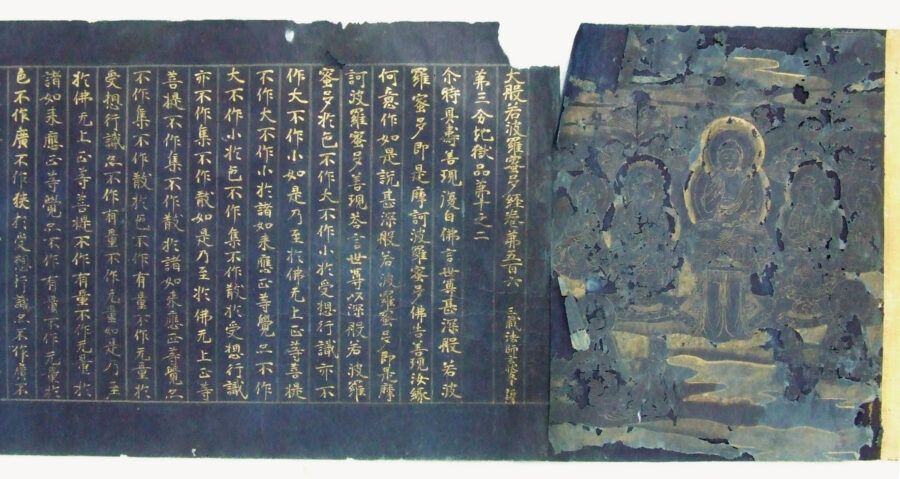 大般若波羅蜜多經卷第五百六 三藏法師玄奘譯
第三分地獄品第十之二
尒時具壽善現復白佛言世尊甚深般若波
羅蜜多即是摩訶波羅蜜多佛告善現汝緣
何意作如是說甚深般若波羅蜜多即是摩
訶波羅蜜多善現荅言世尊以深般若波羅
蜜多於色不作大不作小於受想行識亦不
作大不作小如是乃至於佛无上正等菩提
不作大不作小於諸如來應正等覺亦不作
大不作小於色不作集不作散於受想行識
亦不作集不作散如是乃至於佛无上正等
菩提不作集不作散於諸如來應正等覺亦
不作集不作散於色不作有量不作无量於
受想行識亦不作有量不作无量如是乃至
於佛无上正等菩提不作有量不作无量於
諸如來應正等覺亦不作有量不作无量於
色不作廣不作狹於受想行識亦不作廣不